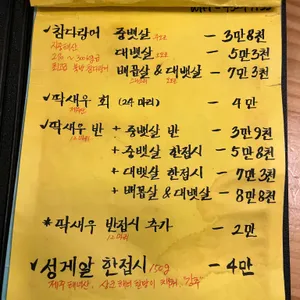 ✓참다랑어 중뱃살 - 3만 8천
대뱃살 - 5만 3천
배꼽살 & 대뱃살 - 7만 3천
✓딱새우 회 (24 마리) - 4만
✓딱새우 반 + 중뱃살 반 - 3만 9천
+ 중뱃살 한접시 - 5만 8천
+ 대뱃살 한접시 - 7만 3천
+ 배꼽살 & 대뱃살 - 8만 8천
* 딱새우 반접시 추가 - 2만
12마리
✓성게알 한접시 150g - 4만